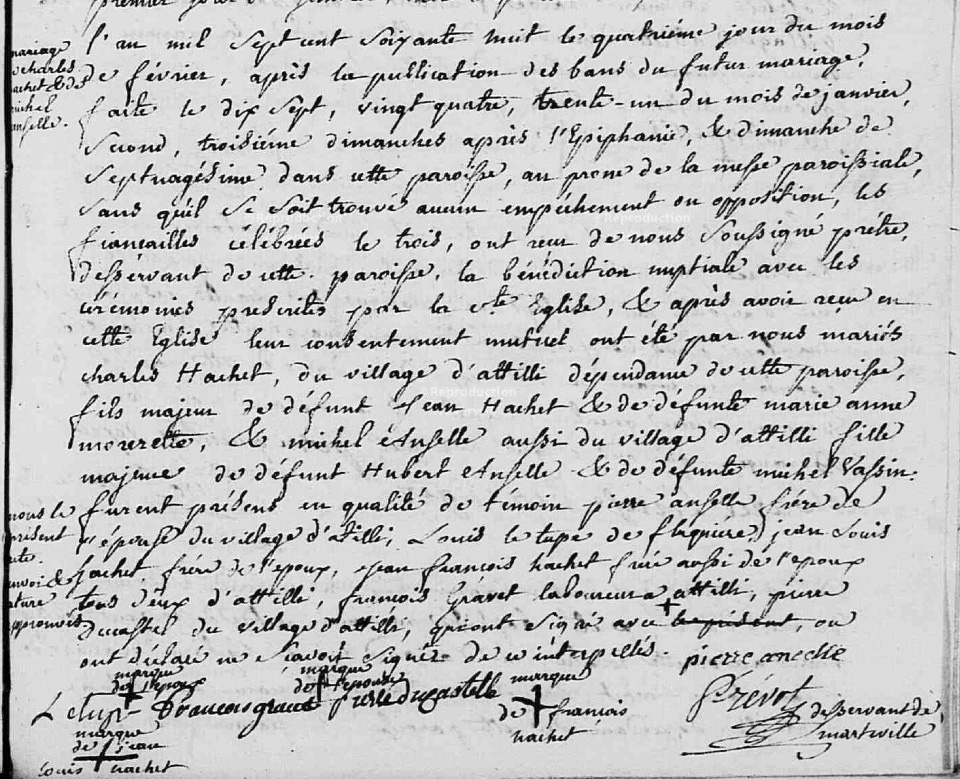 mariage
charles
hachet & de
michel
anselle.
l'an mil sept cent soixante huit le quatriéme jour du mois
de février, après la publication des bans du futur mariage,
faite le dix sept, vingt quatre, trente-un du mois de janvier,
second, troisiéme dimanches après l'Epiphanie, & dimanche de
Septuagésime dans cette paroisse, au prone de la messe paroissiale,
sans qu'il se soit trouvé aucun empéchement ou opposition, les
fiancailles célébrées le trois, ont reçu de nous Soussigné prétre,
desservant de cette paroisse, la bénédiction nuptiale avec les
cérémonies prescrites par la Ste Eglise, & après avoir reçu en
cette Eglise leur consentement mutuel ont été par nous mariés
charles Hachet, du village d'attilli dépendance de cette paroisse,
fils majeur de défunt Jean Hachet & de défunte marie anne
morerette, & michel Anselle aussi du village d'attilli fille
majeure de défunt Hubert Anselle & de défunte michel Vassin.
furent présens en qualité de témoin pierre anselle frére de
l'épouse du village d'attilli, Louis le tupe de fléquiére, jean Louis
hachet frére de l'epoux, jean françois hachet frére aussi de l'epoux
tous deux d'attilli, françois Gravet laboureur a attilli, pierre
Ducastel du village d'attilli, qui ont signé avec le présent, ou
ont déclaré ne scavoir signer de ce interpellés.
nous le
présent
acte
renvoi &
rature
approuvés
pierre anselle
marque
de l'epoux
marque
de l'epouse
marque
de françois
hachet
Letupe
francois gravet
pierre ducastelle
Prévot
desservant de
marteville
marque
de jean
louis hachet
Reproduction
Reproduction
Reproduction